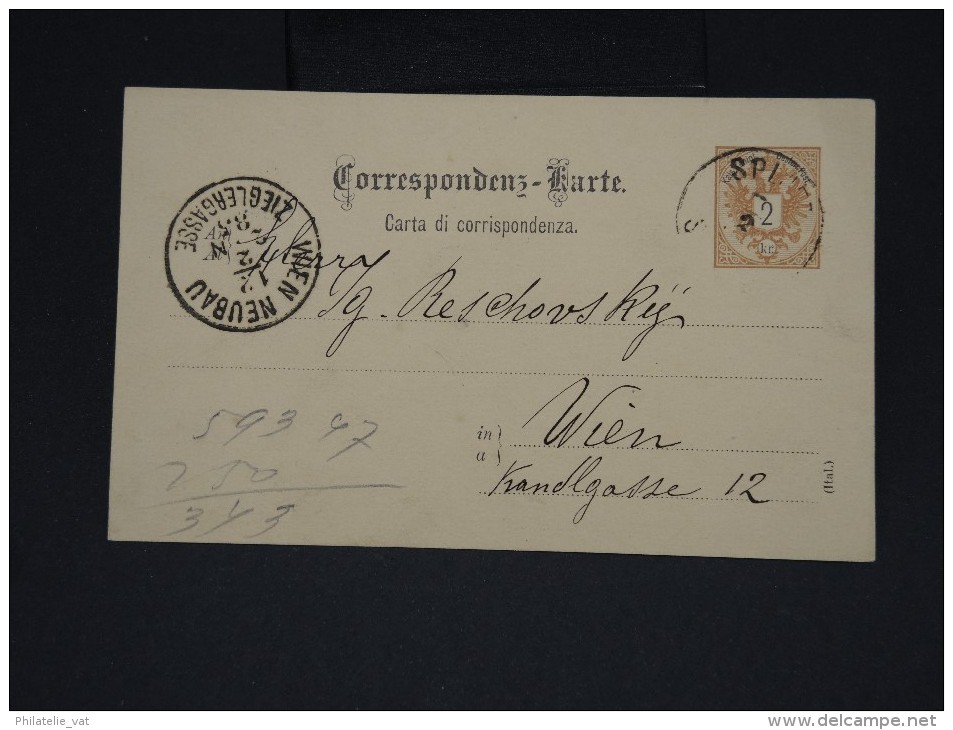 Correspondenz-Karte.
Carta di corrispondenza.
SPI
2
kr.
WIEN NEUBAU
ZIEGLERGASSE
Herrn
Ig. Reschovský
in
a
Wien
Kandlgasse 12
(Ital.)
593 47
250
343
Philatelie_vat
delcampe.net